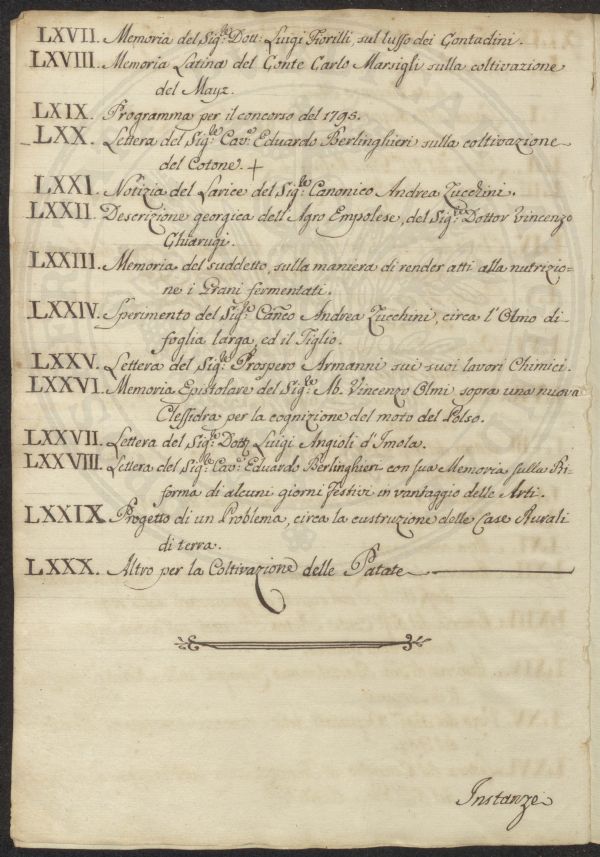 LXVII. Memoria del Sig.re Dott. Luigi Fiorilli, sul lusso dei Contadini.
LXVIII. Memoria Latina del Conte Carlo Marsigli sulla coltivazione
del Mayz.
LXIX. Programma per il concorso del 1795.
LXX. Lettera del Sig.re Cav.e Eduardo Berlinghieri sulla coltivazione
del Cotone. +
LXXI. Notizia del Larice del Sig.re Canonico Andrea Zucchini.
LXXII. Descrizione georgica dell'Agro Empolese, del Sig.re Dottor Vincenzo
Chiarugi.
LXXIII. Memoria del suddetto, sulla maniera di render atti alla nutrizio=
ne i Grani fermentati.
LXXIV. Sperimento del Sig.re Can.co Andrea Zucchini, circa l'Olmo di
foglia larga, ed il Tiglio.
LXXV. Lettera del Sig.re Prospero Armanni sui suoi lavori Chimici.
LXXVI. Memoria Epistolare del Sig.re Ab. Vincenzo Olmi sopra una nuova
Clessidra per la cognizione del moto del Polso.
LXXVII. Lettera del Sig.re Dott. Luigi Angioli d'Imola.
LXXVIII. Lettera del Sig.re Cav.e Eduardo Berlinghieri con sua Memoria sulla Ri=
forma di alcuni giorni Festivi in vantaggio delle Arti.
LXXIX. Progetto di un Problema, circa la custruzione delle Case Rurali
di terra.
LXXX. Altro per la Coltivazione delle Patate
Instanze